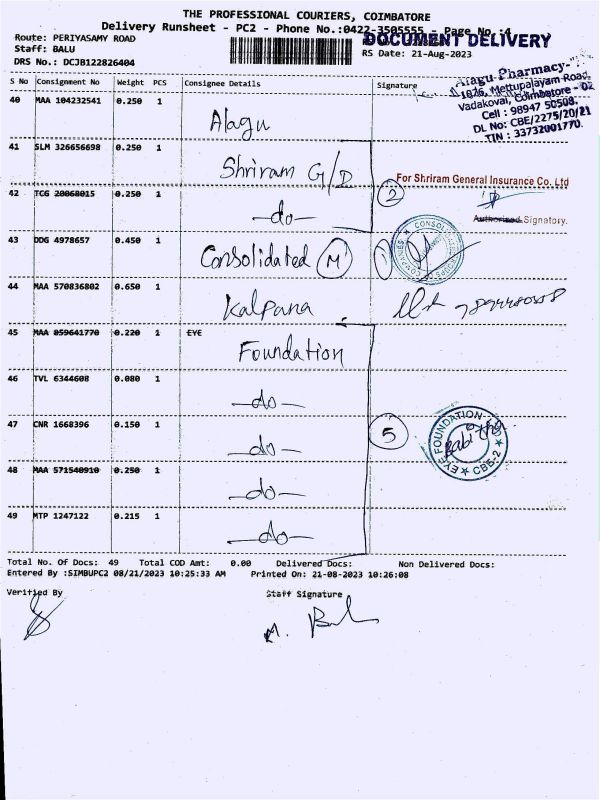 THE PROFESSIONAL COURIERS, COIMBATORE
Delivery Runsheet - PC2 - Phone No.:0422-3505555 - Page No.:4
Route: PERIYASAMY ROAD
DOCUMENT DELIVERY
Staff: BALU
RS Date: 21-Aug-2023
DRS No.: DCJB122826404
S No Consignment No Weight PCS Consignee Details Signature
Alagu Pharmacy-
1876, Mettupalayam Road,
Vadakovai, Coimbatore - 02
Cell : 98947 50508.
DL No: CBE/2275/20/21
TIN : 33732001770.
40 MAA 104232541 0.250 1 Alagu
41 SLM 326656698 0.250 1 Shriram G/I
For Shriram General Insurance Co. Ltd
42 TCG 20068015 0.250 1 -do- 2
Authorized Signatory.
43 DDG 4978657 0.450 1 Consolidated M 1
44 MAA 570836802 0.650 1 Kalpana
45 MAA 059641770 0.220 1 EYE Foundation
46 TVL 6344608 0.080 1 -do-
47 CNR 1668396 0.150 1 -do- 5
EYE FOUNDATION CBE-2
48 MAA 571540910 0.250 1 -do-
49 MTP 1247122 0.215 1 -do-
Total No. Of Docs: 49 Total COD Amt: 0.00 Delivered Docs: Non Delivered Docs:
Entered By :SIMBUPC2 08/21/2023 10:25:33 AM Printed On: 21-08-2023 10:26:08
Verified By Staff Signature
M.